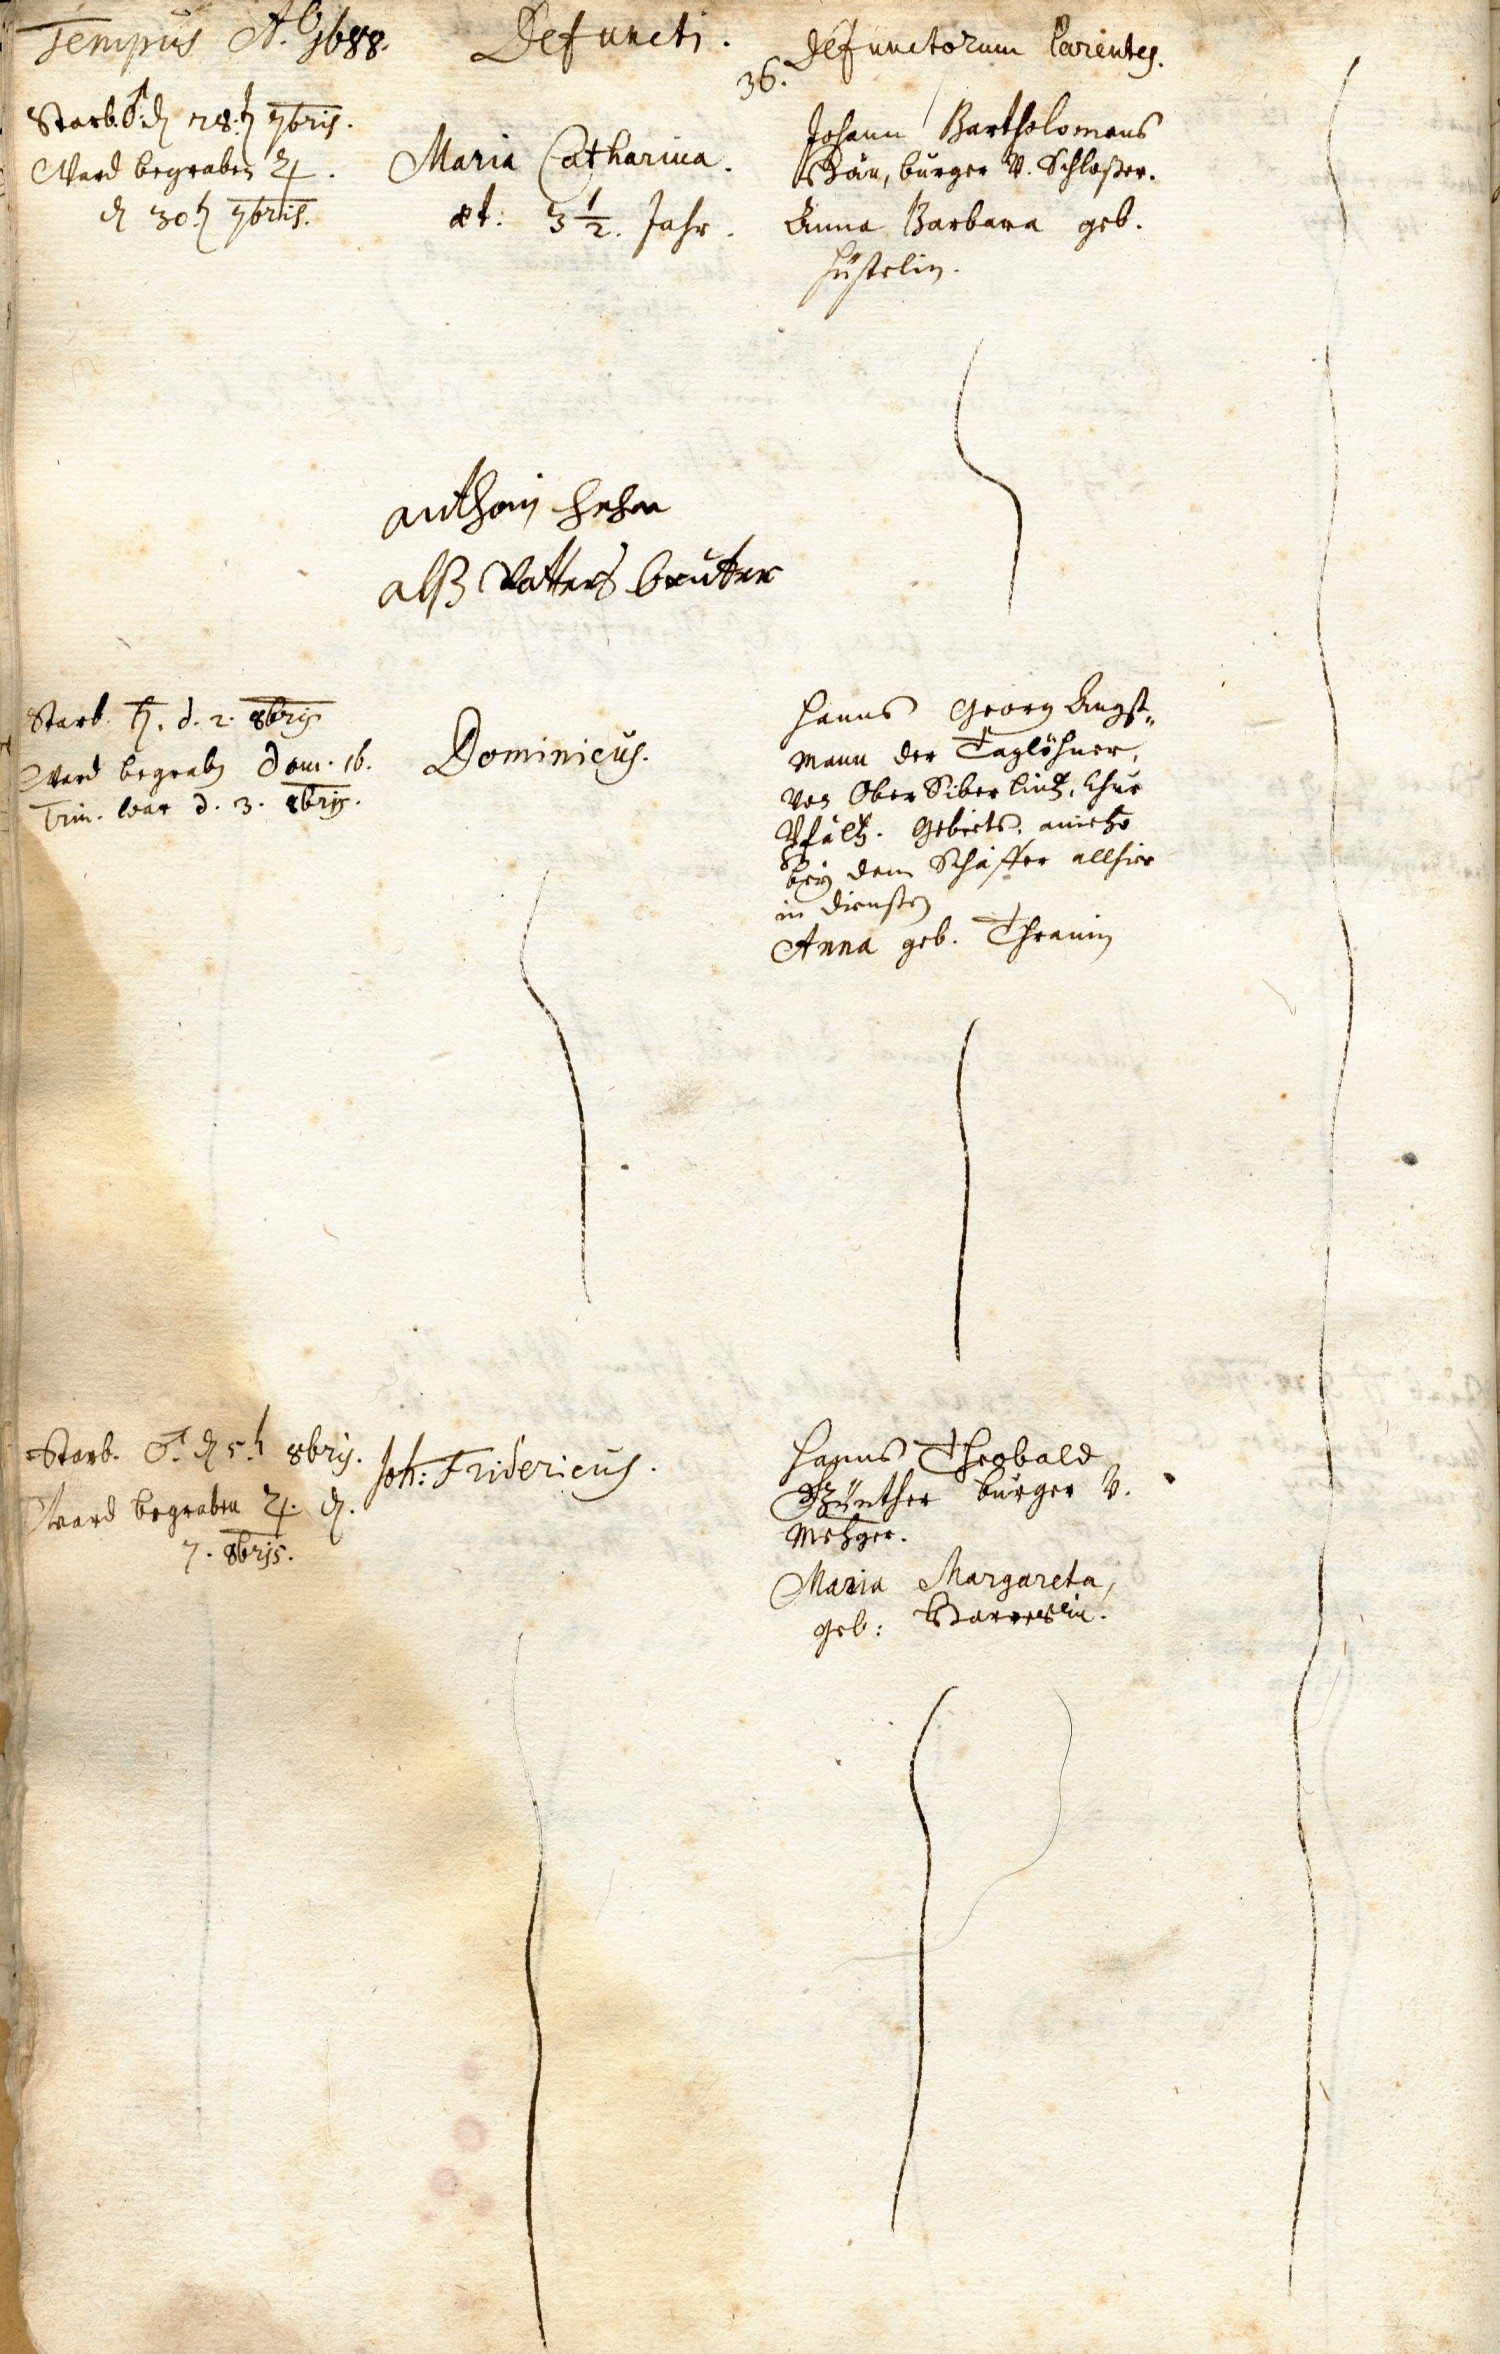 Tempus A.o 1688.
Defuncti.
Defunctorum Parentes.
36.
Starb. ♂. d 28.t 7bris.
Ward begraben ♃.
d 30.t 7bris.
Maria Catharina.
æt: 3 1/2. Jahr.
Johann Bartholomeus
burger V. Schloßer.
Anna Barbara geb.
anthoni
alß Vatters bruter
Starb. ♄. d. 2. 8bris
Ward begrabn Dom. 16.
Trin. war d. 3. 8bris.
Dominicus.
Hanns Georg Angst„
mann der Taglöhner,
von Ober Chur
Pfältz. Gebiets, anietzo
bey dem Schäffer allhier
in diensten
Anna geb.
Starb. ♂. d 5.t 8bris.
Ward begraben ♃. d.
7. 8bris.
Joh: Fridericus.
Hanns Theobald
Günther burger V.
Metzger.
Maria Margareta,
geb: